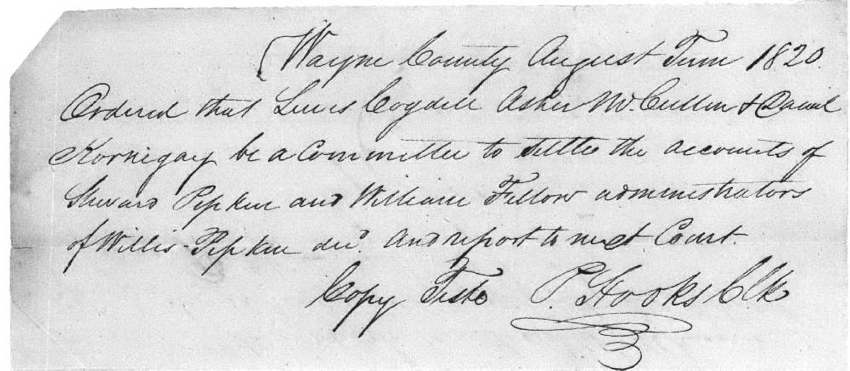 Wayne County August Term 1820
Ordered that Lewis Cogdell Asher McCullin & Daniel
Kornegay be a Committee to settle the accounts of
Steward Pipkin and William Fellow administrators
of Willis Pipkin decd. And report to next Court.
Copy Teste P. Hooks Clk